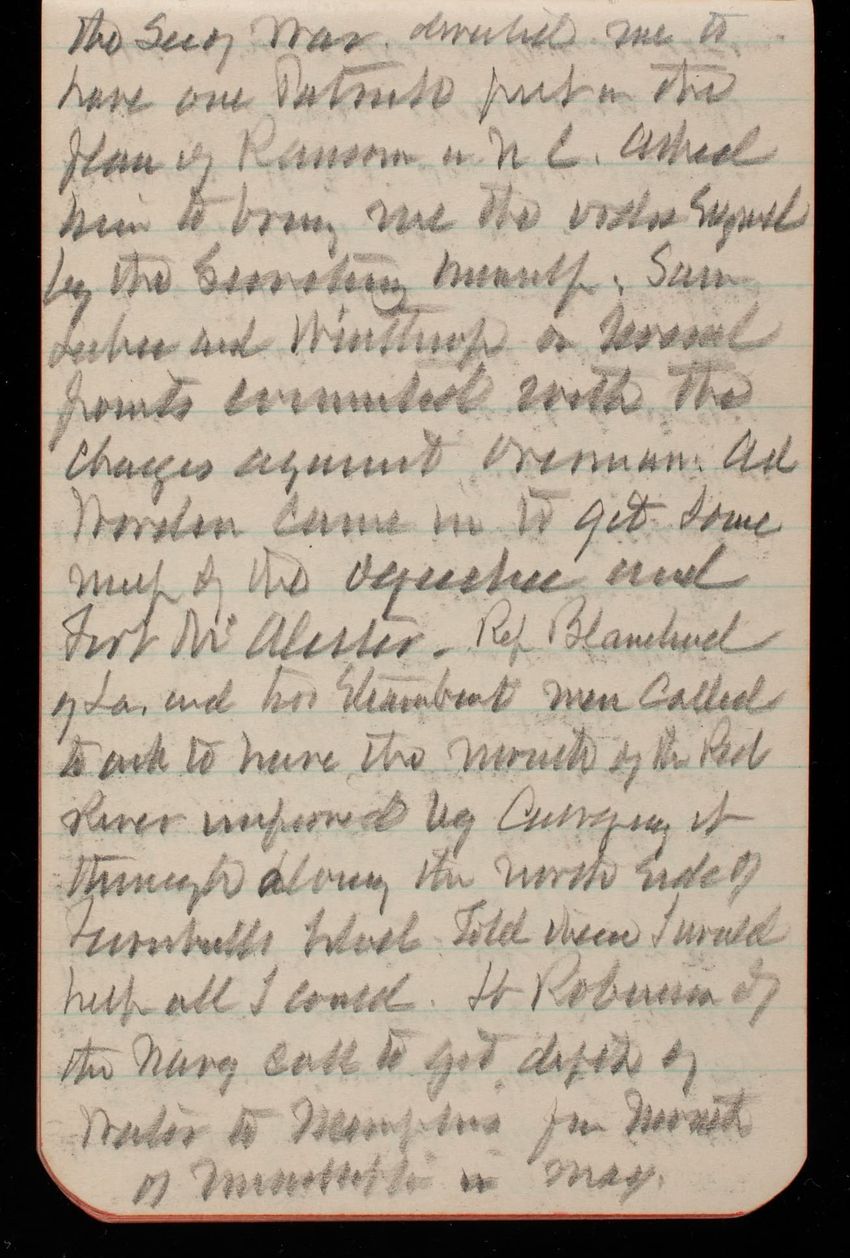 the Secy War. directed me to
have one Patrick put in the
place of Ransom in N C. Asked
him to bring me the order Signed
by the Secretary himself. Saw
and Winthrop on several
points connected with the
charges against Overman. Ad
Worden came in to get some
map of the Ogeechee and
Fort McAlester. Rep Blanchard
of La. and two Steamboat men Called
to ask to have the mouth of the Red
River improved by Carrying it
through along the north side of
Turnbulls Island. Told them I would
help all I could. Lt of
the Navy call to get depth of
Water to Memphis from Mouth
of Mississippi in May.